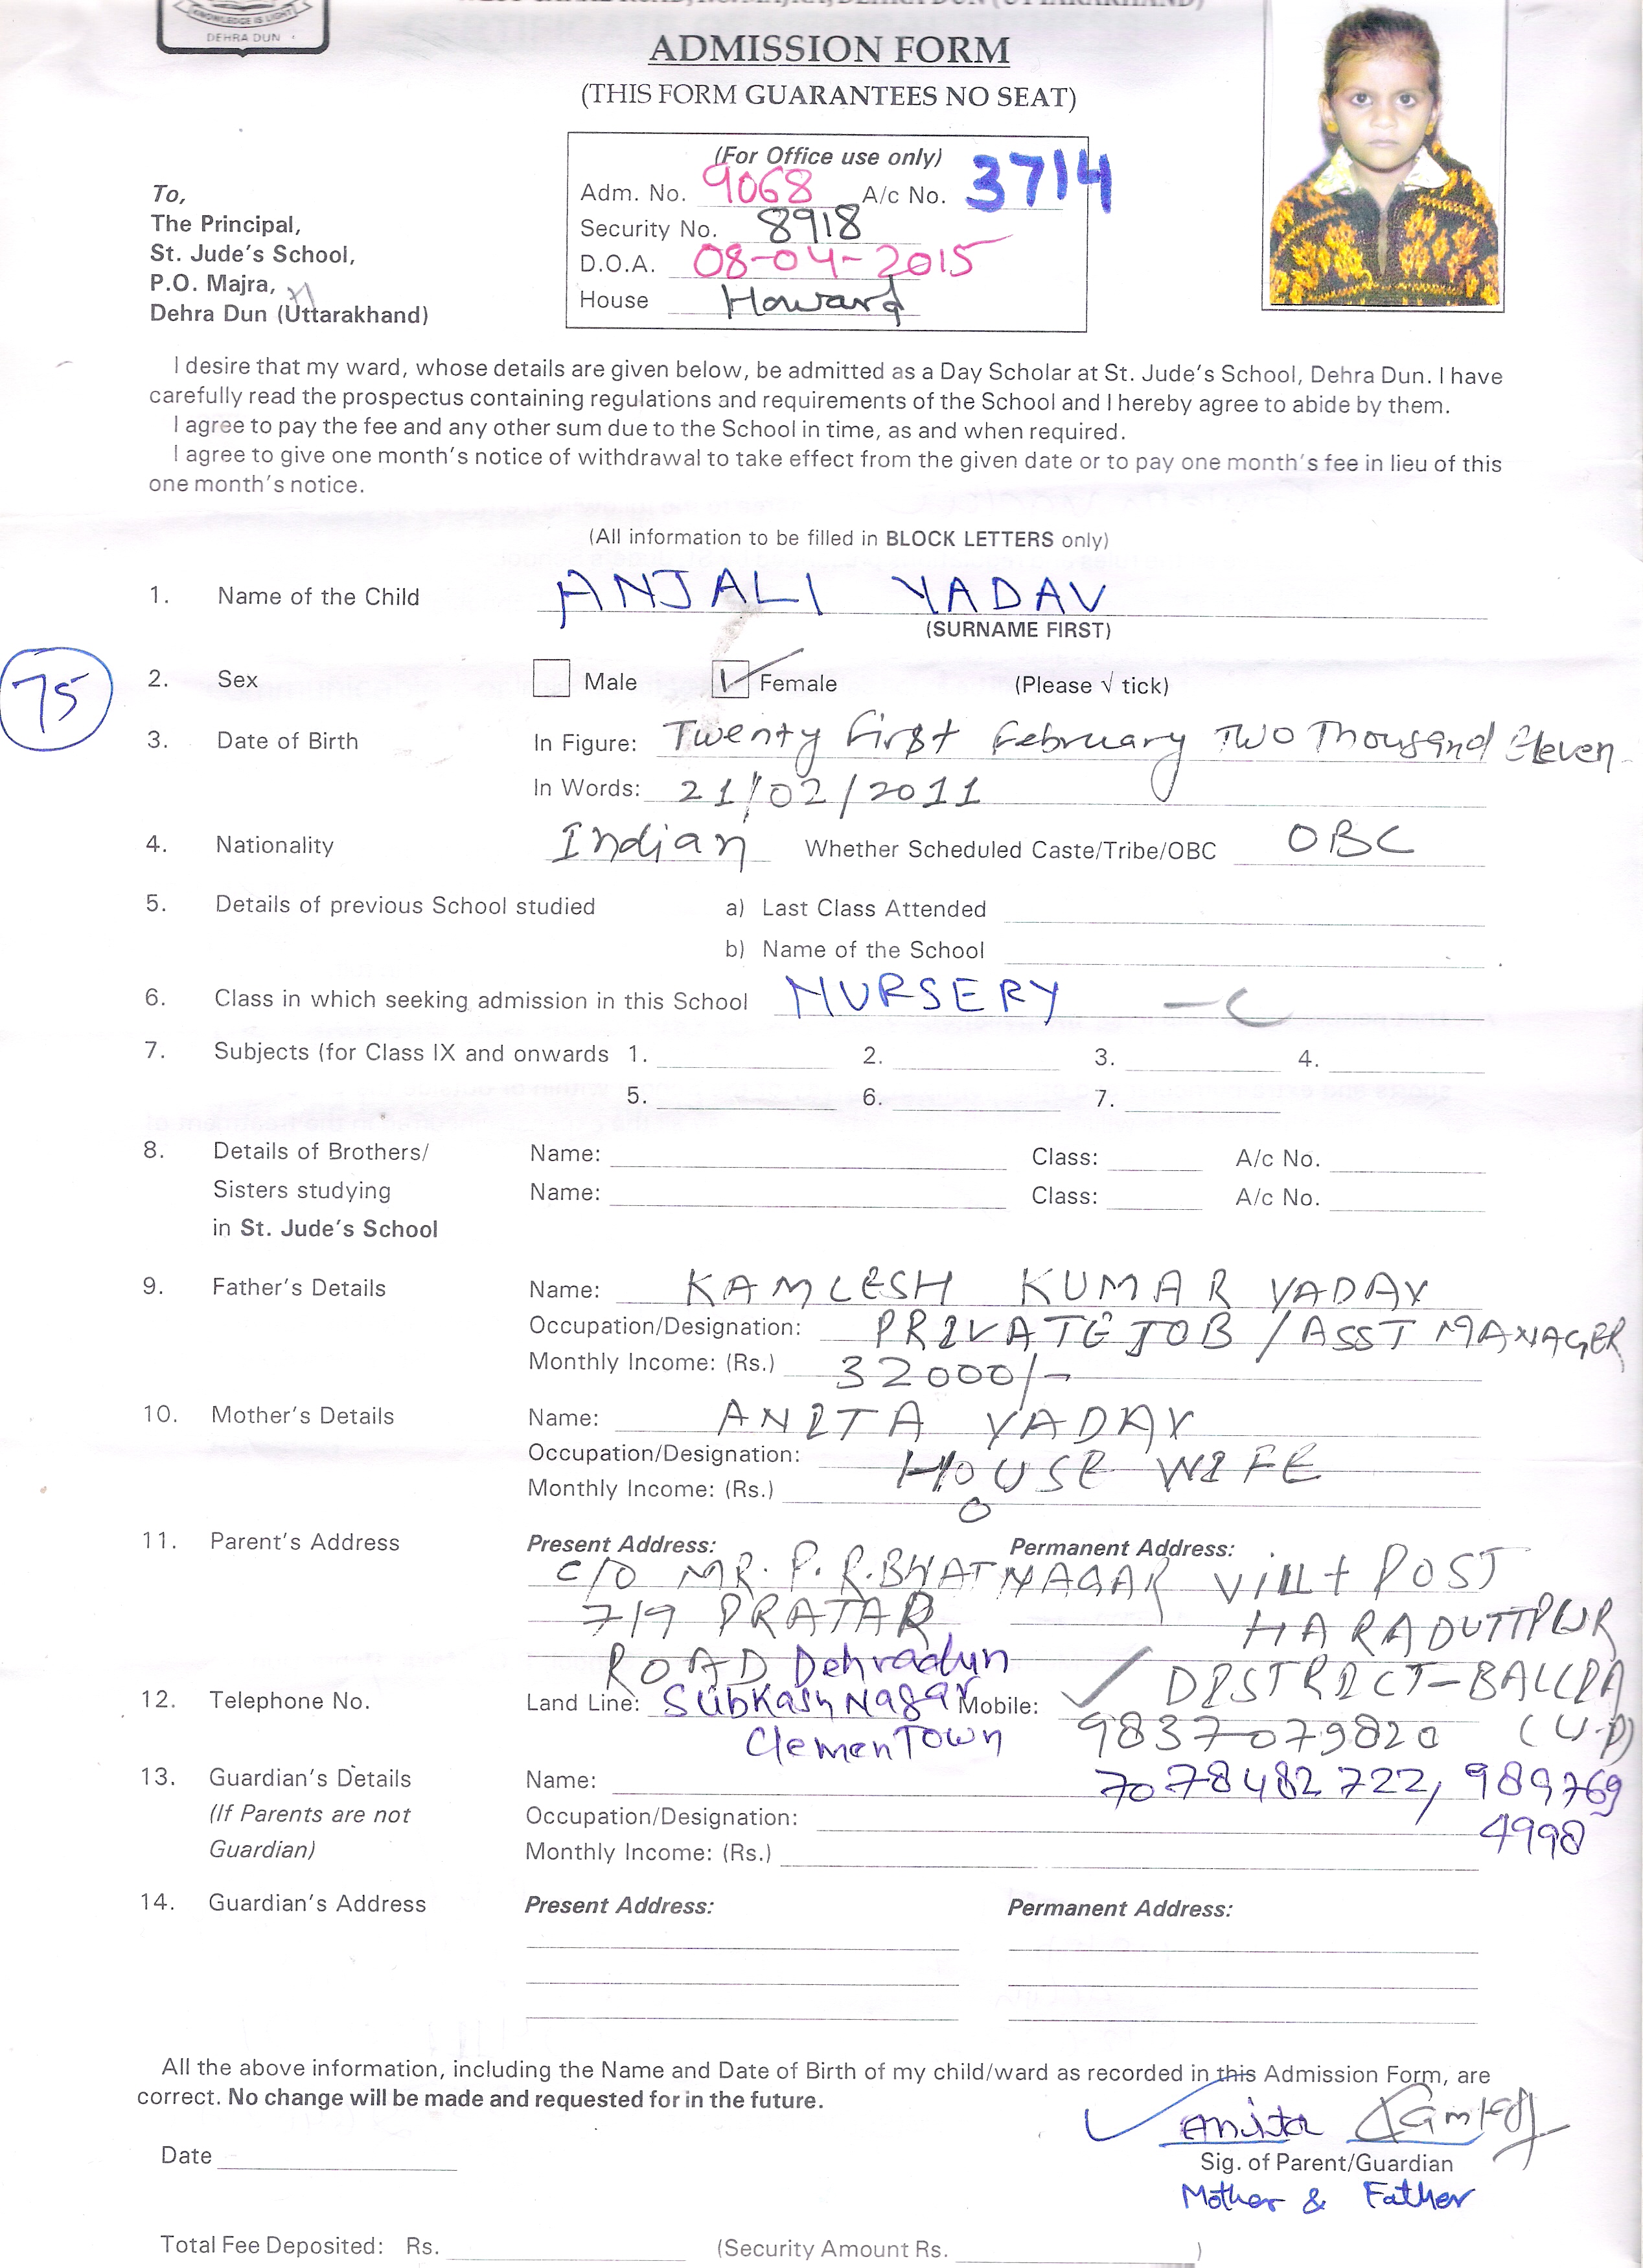 KNOWLEDGE IS LIGHT
DEHRA DUN
ADMISSION FORM
(THIS FORM GUARANTEES NO SEAT)
(For Office use only)
Adm. No. 9068 A/c No. 3714
Security No. 8918
D.O.A. 08-04-2015
House Howard
To,
The Principal,
St. Jude's School,
P.O. Majra,
Dehra Dun (Uttarakhand)
I desire that my ward, whose details are given below, be admitted as a Day Scholar at St. Jude's School, Dehra Dun. I have
carefully read the prospectus containing regulations and requirements of the School and I hereby agree to abide by them.
I agree to pay the fee and any other sum due to the School in time, as and when required.
I agree to give one month's notice of withdrawal to take effect from the given date or to pay one month's fee in lieu of this
one month's notice.
(All information to be filled in BLOCK LETTERS only)
1. Name of the Child ANJALI YADAV
(SURNAME FIRST)
75
2. Sex Male Female (Please √ tick)
3. Date of Birth In Figure: Twenty first February Two Thousand Eleven
In Words: 21/02/2011
4. Nationality Indian Whether Scheduled Caste/Tribe/OBC OBC
5. Details of previous School studied a) Last Class Attended
b) Name of the School
6. Class in which seeking admission in this School NURSERY - C
7. Subjects (for Class IX and onwards 1. 2. 3. 4.
5. 6. 7.
8. Details of Brothers/ Name: Class: A/c No.
Sisters studying Name: Class: A/c No.
in St. Jude's School
9. Father's Details Name: KAMLESH KUMAR YADAV
Occupation/Designation: PRIVATE JOB / ASST MANAGER
Monthly Income: (Rs.) 32000/-
10. Mother's Details Name: ANITA YADAV
Occupation/Designation: HOUSE WIFE
Monthly Income: (Rs.) 0
11. Parent's Address Present Address: Permanent Address:
C/O MR. P. R. BHATNAGAR Vill + POST
719 PRATAP HARADUTTPUR
ROAD Dehradun DISTRICT-BALLIA
12. Telephone No. Land Line: Subhash Nagar Mobile: 9837079820 (U.P)
Clemen Town
7078482722, 989769
4998
13. Guardian's Details Name:
(If Parents are not Occupation/Designation:
Guardian) Monthly Income: (Rs.)
14. Guardian's Address Present Address: Permanent Address:
All the above information, including the Name and Date of Birth of my child/ward as recorded in this Admission Form, are
correct. No change will be made and requested for in the future.
Anita
Date Sig. of Parent/Guardian
Mother & Father
Total Fee Deposited: Rs. (Security Amount Rs. )